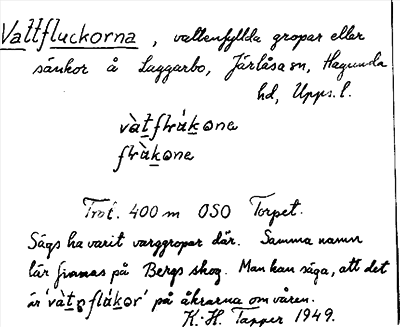 Vattfluckorna, vattenfyllda gropar eller
sänkor å Laggarbo, Järlåsa sn, Hagunda
hd, Upps. l.
và̀tflrákona
flràkona
Trol. 400 m OSO Torpet.
Sägs ha varit varggropar där. Samma namn
lär finnas på Bergs skog. Man kan säga, att det
är 'và̀toflákor' på åkrarna om våren.
K.-H. Tapper 1949.